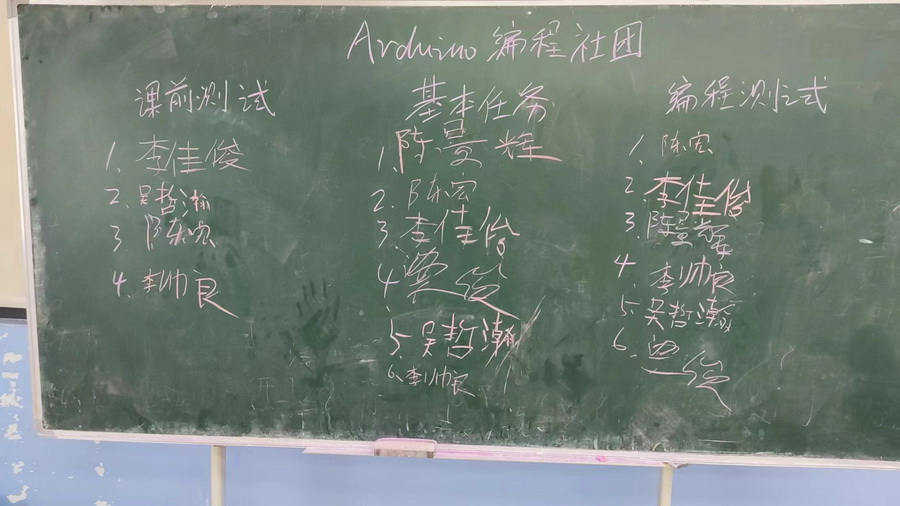 Arduino编程社团
课前测试
1. 李佳俊
2. 吴哲瀚
3 陈宏
4. 李帅良
基本任务
1. 陈曼辉
2. 陈宏
3. 李佳俊
4
5. 吴哲瀚
6. 李帅良
编程测试
1. 陈宏
2. 李佳俊
3. 陈曼辉
4. 李帅良
5. 吴哲瀚
6.